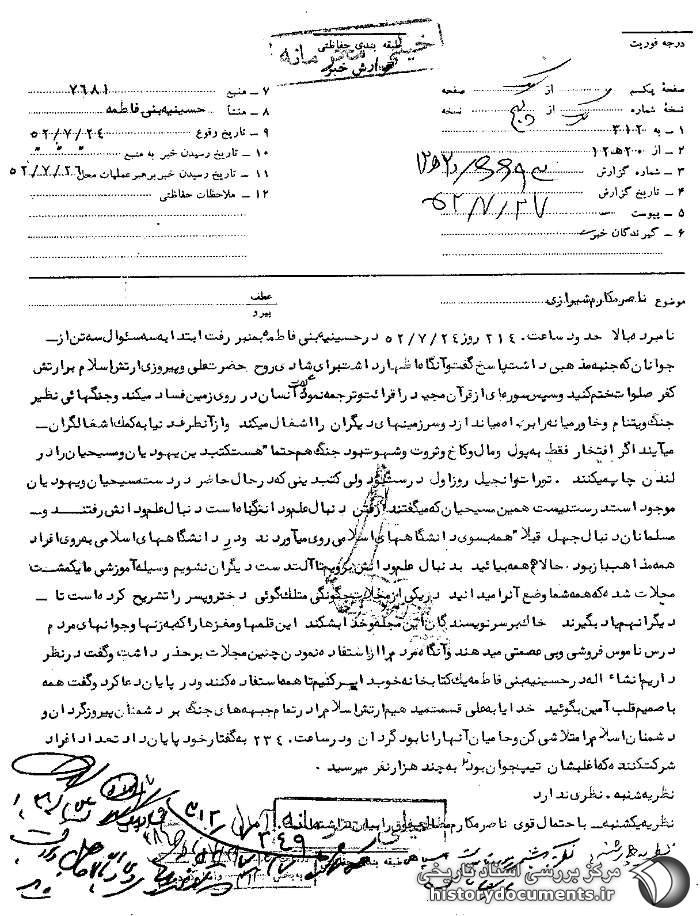 درجه فوریت
طبقه بندی حفاظتی
خیلی محرمانه
گزارش خبر
صفحه یکم از صفحه
نسخه شماره از نسخه
۱ – به ۳۱۲
۲ – از ۲۰ هـ ۱۲
۳ – شماره گزارش
۴ – تاریخ گزارش ۵۲/۷/۲۷
۵ – پیوست
۶ – گیرندگان خبر
۷ – منبع ۷۶۸۱
۸ – منشأ حسینیه بنی فاطمه
۹ – تاریخ وقوع ۵۲/۷/۲۴
۱۰ – تاریخ رسیدن خبر به منبع
۱۱ – تاریخ رسیدن خبر برهبر عملیات محل ۵۲/۷/۲۶
۱۲ – ملاحظات حفاظتی
موضوع ناصر مکارم شیرازی
عطف
پیرو
نامبرده بالا حدود ساعت ۲۱۴۰ روز ۵۲/۷/۲۴ در حسینیه بنی فاطمه بمنبر رفت ابتدا به سه سئوال سه تن از
جوانان که جنبه مذهبی داشت پاسخ گفت و آنگاه اظهار داشت برای شادی روح حضرت علی و پیروزی ارتش اسلام بر ارتش
کفر صلوات ختم کنید و سپس سوره ای از قرآن مجید را قرائت و ترجمه نمود که انسان در روی زمین فساد میکند و جنگهائی نظیر
جنگ ویتنام و خاور میانه را براه میاندازد و سرزمینهای دیگران را اشغال میکند و از آنطرف دنیا به کمک اشغالگران
میآیند اگر افتخار فقط به پول و مال و کاخ و ثروت و شهوت بود جنگ هم حتما" هست کتب دین یهودیان و مسیحیان را در
لندن چاپ میکنند . تورات و انجیل روز اول درست بود ولی کتب دینی که در حال حاضر در دست مسیحیان و یهودیان
موجود است درست نیست همین مسیحیان که میگفتند رفتن دنبال علم و دانش گناه است دنبال علم و دانش رفتند و
مسلمانان دنبال جهل قبلا" همه بسوی دانشگاههای اسلامی روی میآوردند و در دانشگاههای اسلامی بروی افراد
همه مذاهب باز بود . حالا هم همه بیائید بدنبال علم و دانش برویم تا آلت دست دیگران نشویم وسیله آموزشی ما یکمشت
مجلات شده که همه شما وضع آنرا میدانید در یکی از مجلات چگونگی متلک گوئی دختر و پسر را تشریح کرده است تا
دیگران هم یاد بگیرند خاک بر سر نویسندگان این مجله و خدا بشکند این قلمها و مغزها را که به زنها و جوانهای مردم
درس ناموس فروشی و بی عصمتی میدهند و آنگاه مردم را از استفاده نمودن چنین مجلات برحذر داشت و گفت در نظر
داریم انشاء اله در حسینیه بنی فاطمه یک کتابخانه خوب دایر کنیم تا همه استفاده کنند و در پایان دعا کرد و گفت همه
با صمیم قلب آمین بگوئید خدایا به علی قسمت میدهیم ارتش اسلام را در تمام جبهه های جنگ بر دشمنان پیروز گردان و
دشمنان اسلام را متلاشی کن و حامیان آنها را نابود گردان و در ساعت ۲۳۴۰ به گفتار خود پایان داد تعداد افراد
شرکت کننده که اغلبشان تیپ جوان بود به چند هزار نفر میرسید .
نظریه شنبه . نظری ندارد
نظریه یکشنبه – با احتمال قوی ناصر مکارم
خیلی محرمانه
مرکز بررسی اسناد تاریخی
historydocuments.ir